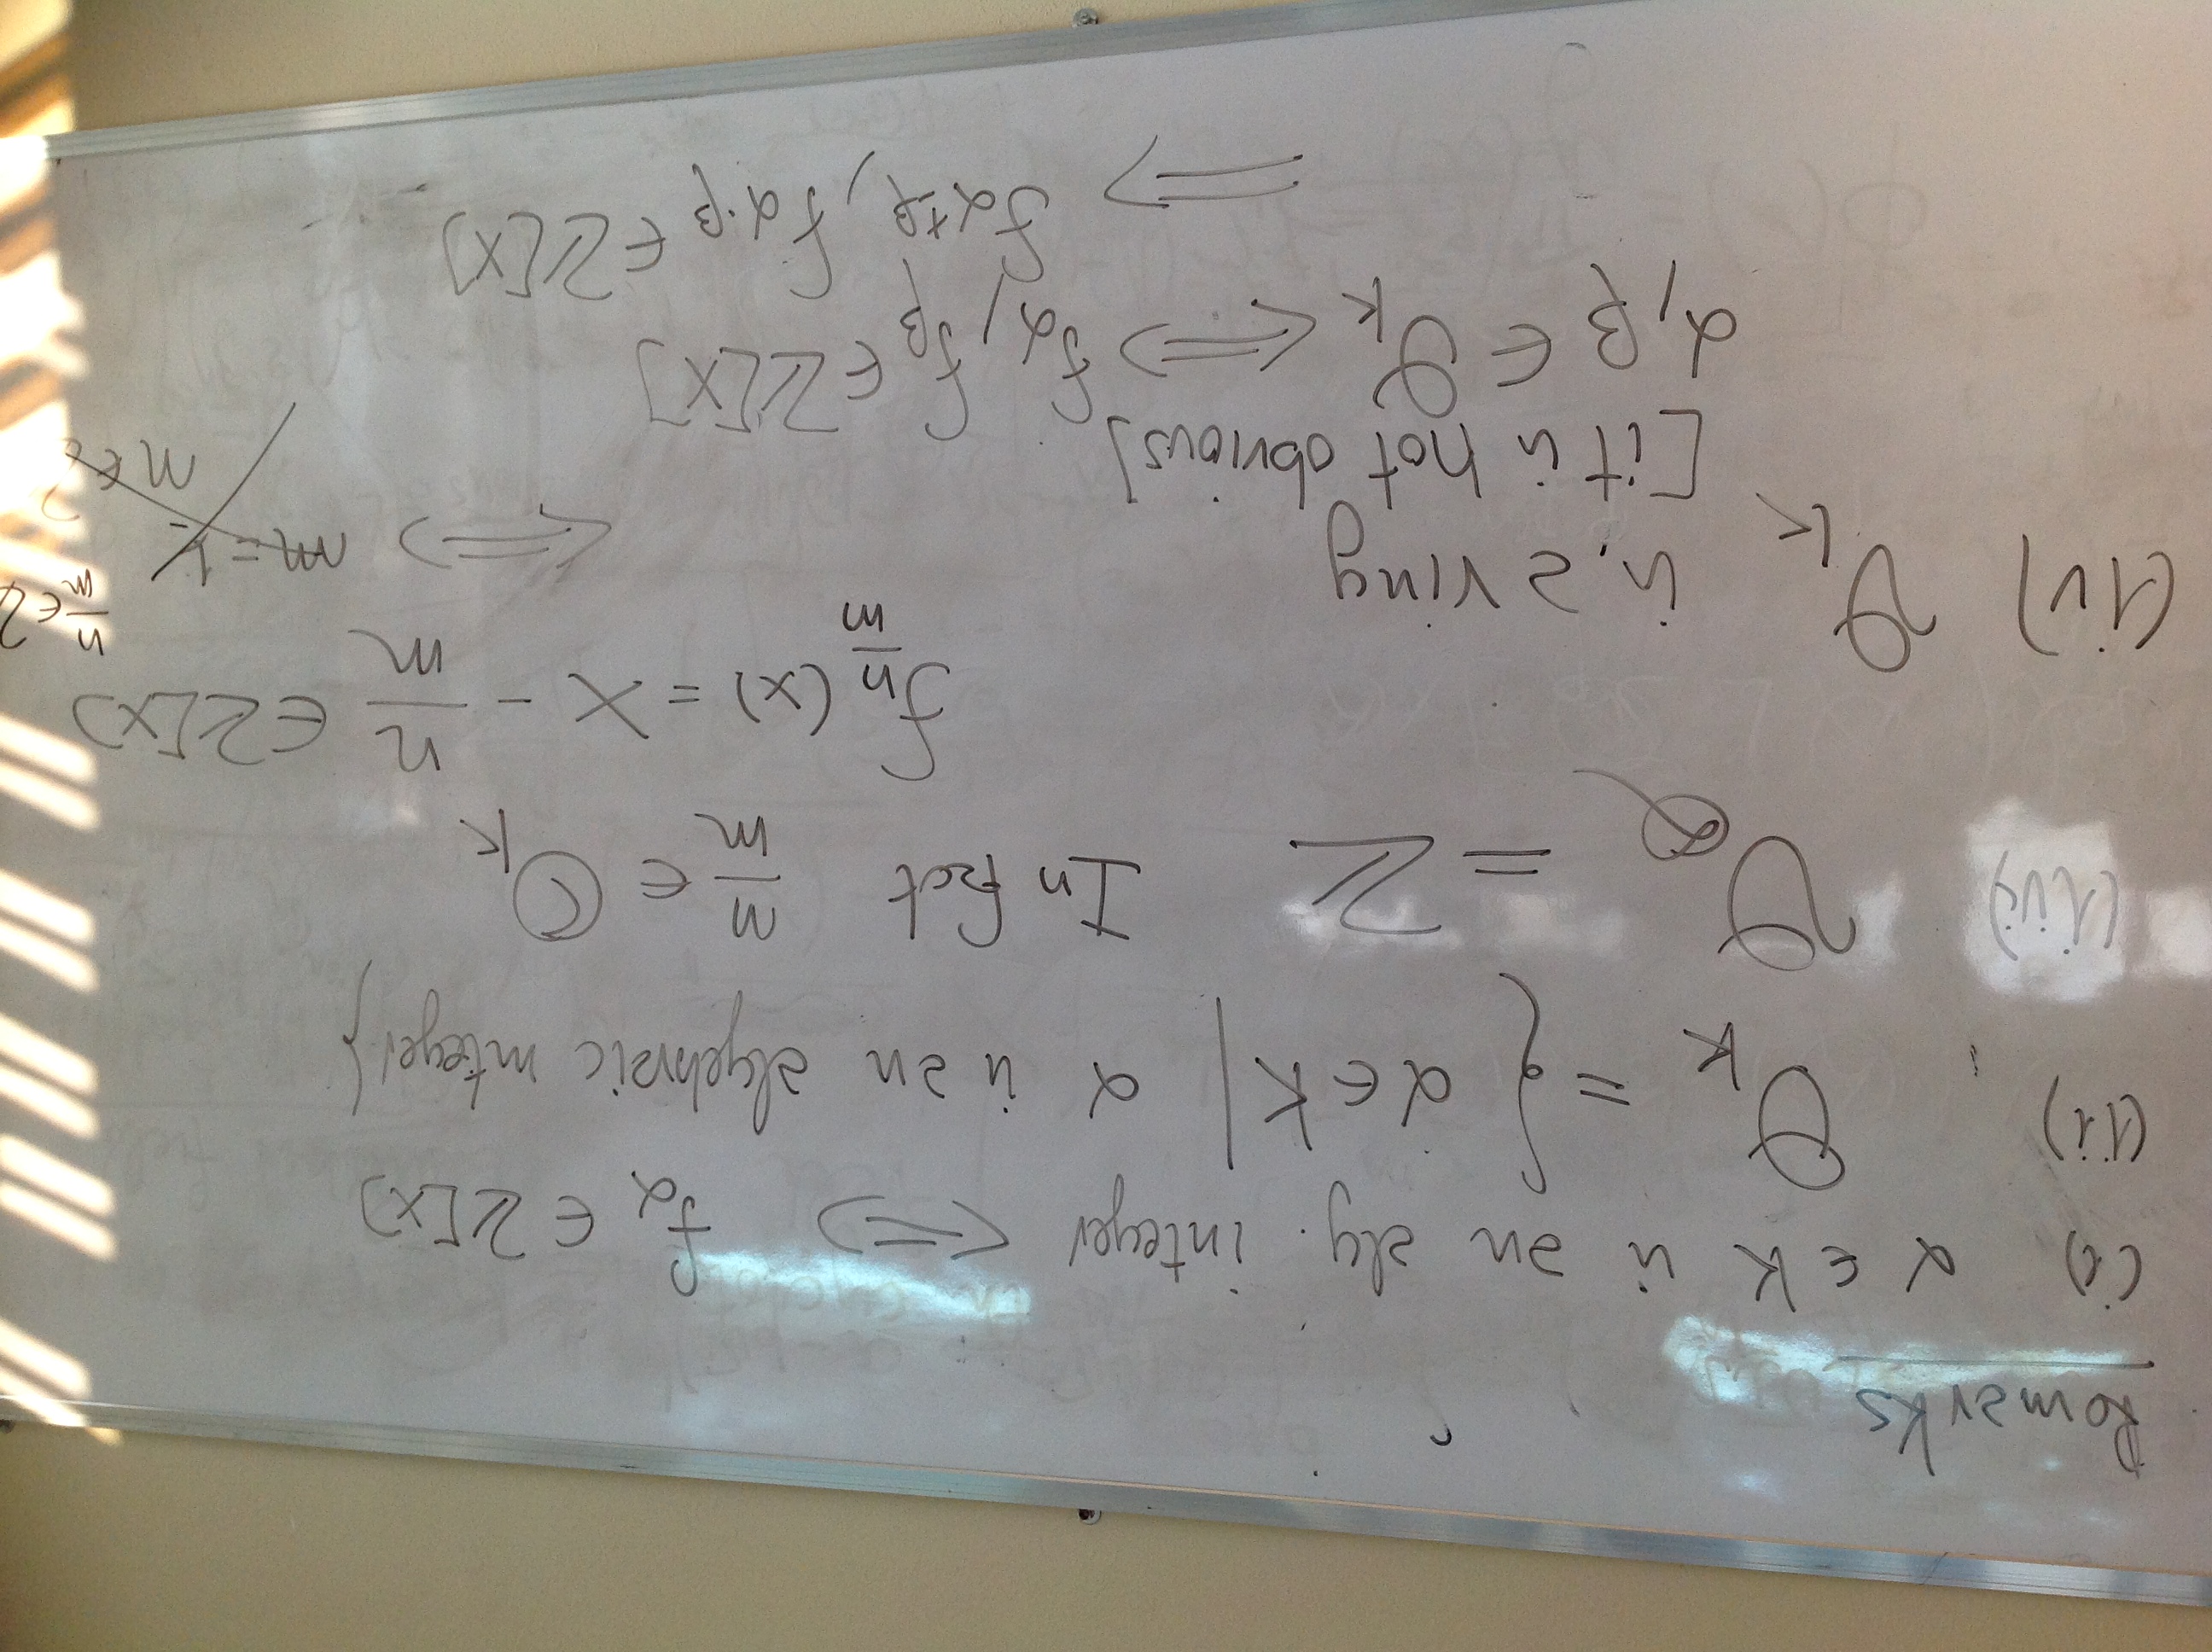 Remarks
(i) α ∈ K is an alg. integer ⟺ f_α ∈ ℤ[X]
(ii) O_K = {α ∈ K | α is an algebraic integer}
(iii) O_ℚ = ℤ In fact n/m ∈ O_K
f_{n/m}(x) = X - n/m ∈ ℤ[X]
⟺ n/m ∈ ℤ
(iv) O_K is a ring
[it is not obvious]
α, β ∈ O_K ⟺ f_α, f_β ∈ ℤ[X]
⟹ f_{α±β}, f_{α·β} ∈ ℤ[X]